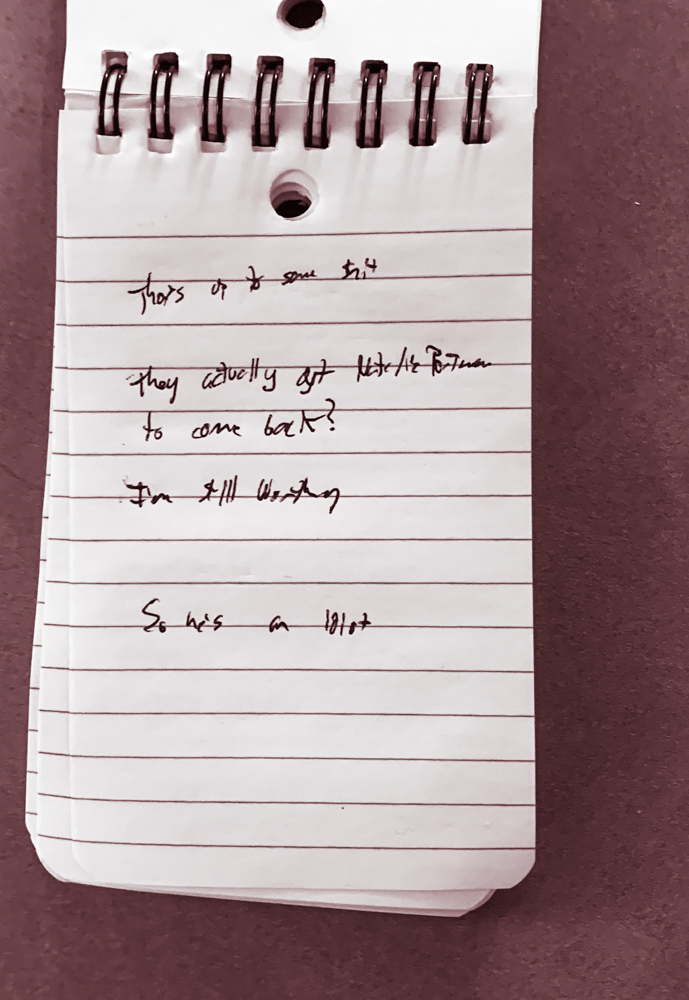 Thor's up to some shit
They actually got Natalie Portman
to come back?
I'm still
So he's an idiot